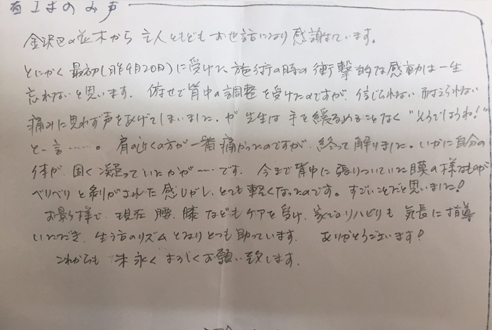 金沢区の並木から主人ともどもお世話になり感謝しています。
とにかく最初(昨年4月20日)に受けた施術の時の衝撃的な感動は一生
忘れないと思います。俯せで背中の調整を受けたのですが、信じられない耐えられない
痛みに思わず声をあげてしまいました。が先生は手を緩めることなく"そうでしょうね!"
と一言……。肩の近くの方が一番痛かったのですが、終って解りました。いかに自分の
体が固く凝っていたかが……です。今まで背中に張りついていた膜の様なものが
ベリベリと剥がされた感じがし、とても軽くなったのです。すごいことだと思いました!
お蔭様で、現在腰、膝などもケアを受け、家でのリハビリも気長に指導
いただき、生活のリズムとなりとても助っています。ありがとうございます!
これからも末永くよろしくお願い致します。